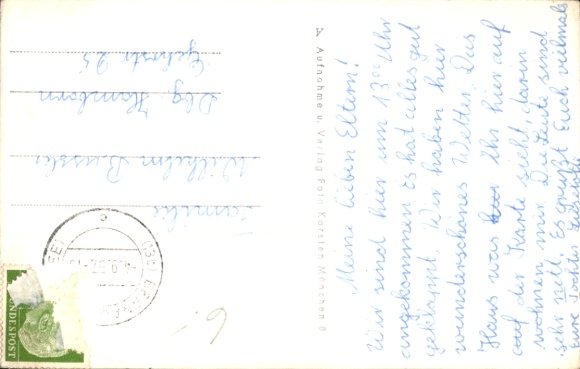 Meine lieben Eltern!
Wir sind hier um 13⁰⁰ Uhr
angekommen. Es hat alles gut
geklappt. Wir haben hier
wunderschönes Wetter. Das
Haus was Ihr hier auf
auf der Karte sieht, darin
wohnen wir. Die Leute sind
sehr nett. Es grüßt Euch vielmals
Eure Tochter
Aufnahme u. Verlag Foto Karsten München 8
Familie
Wilhelm
Dbg. Hamborn
25
BUNDESPOST
6.-